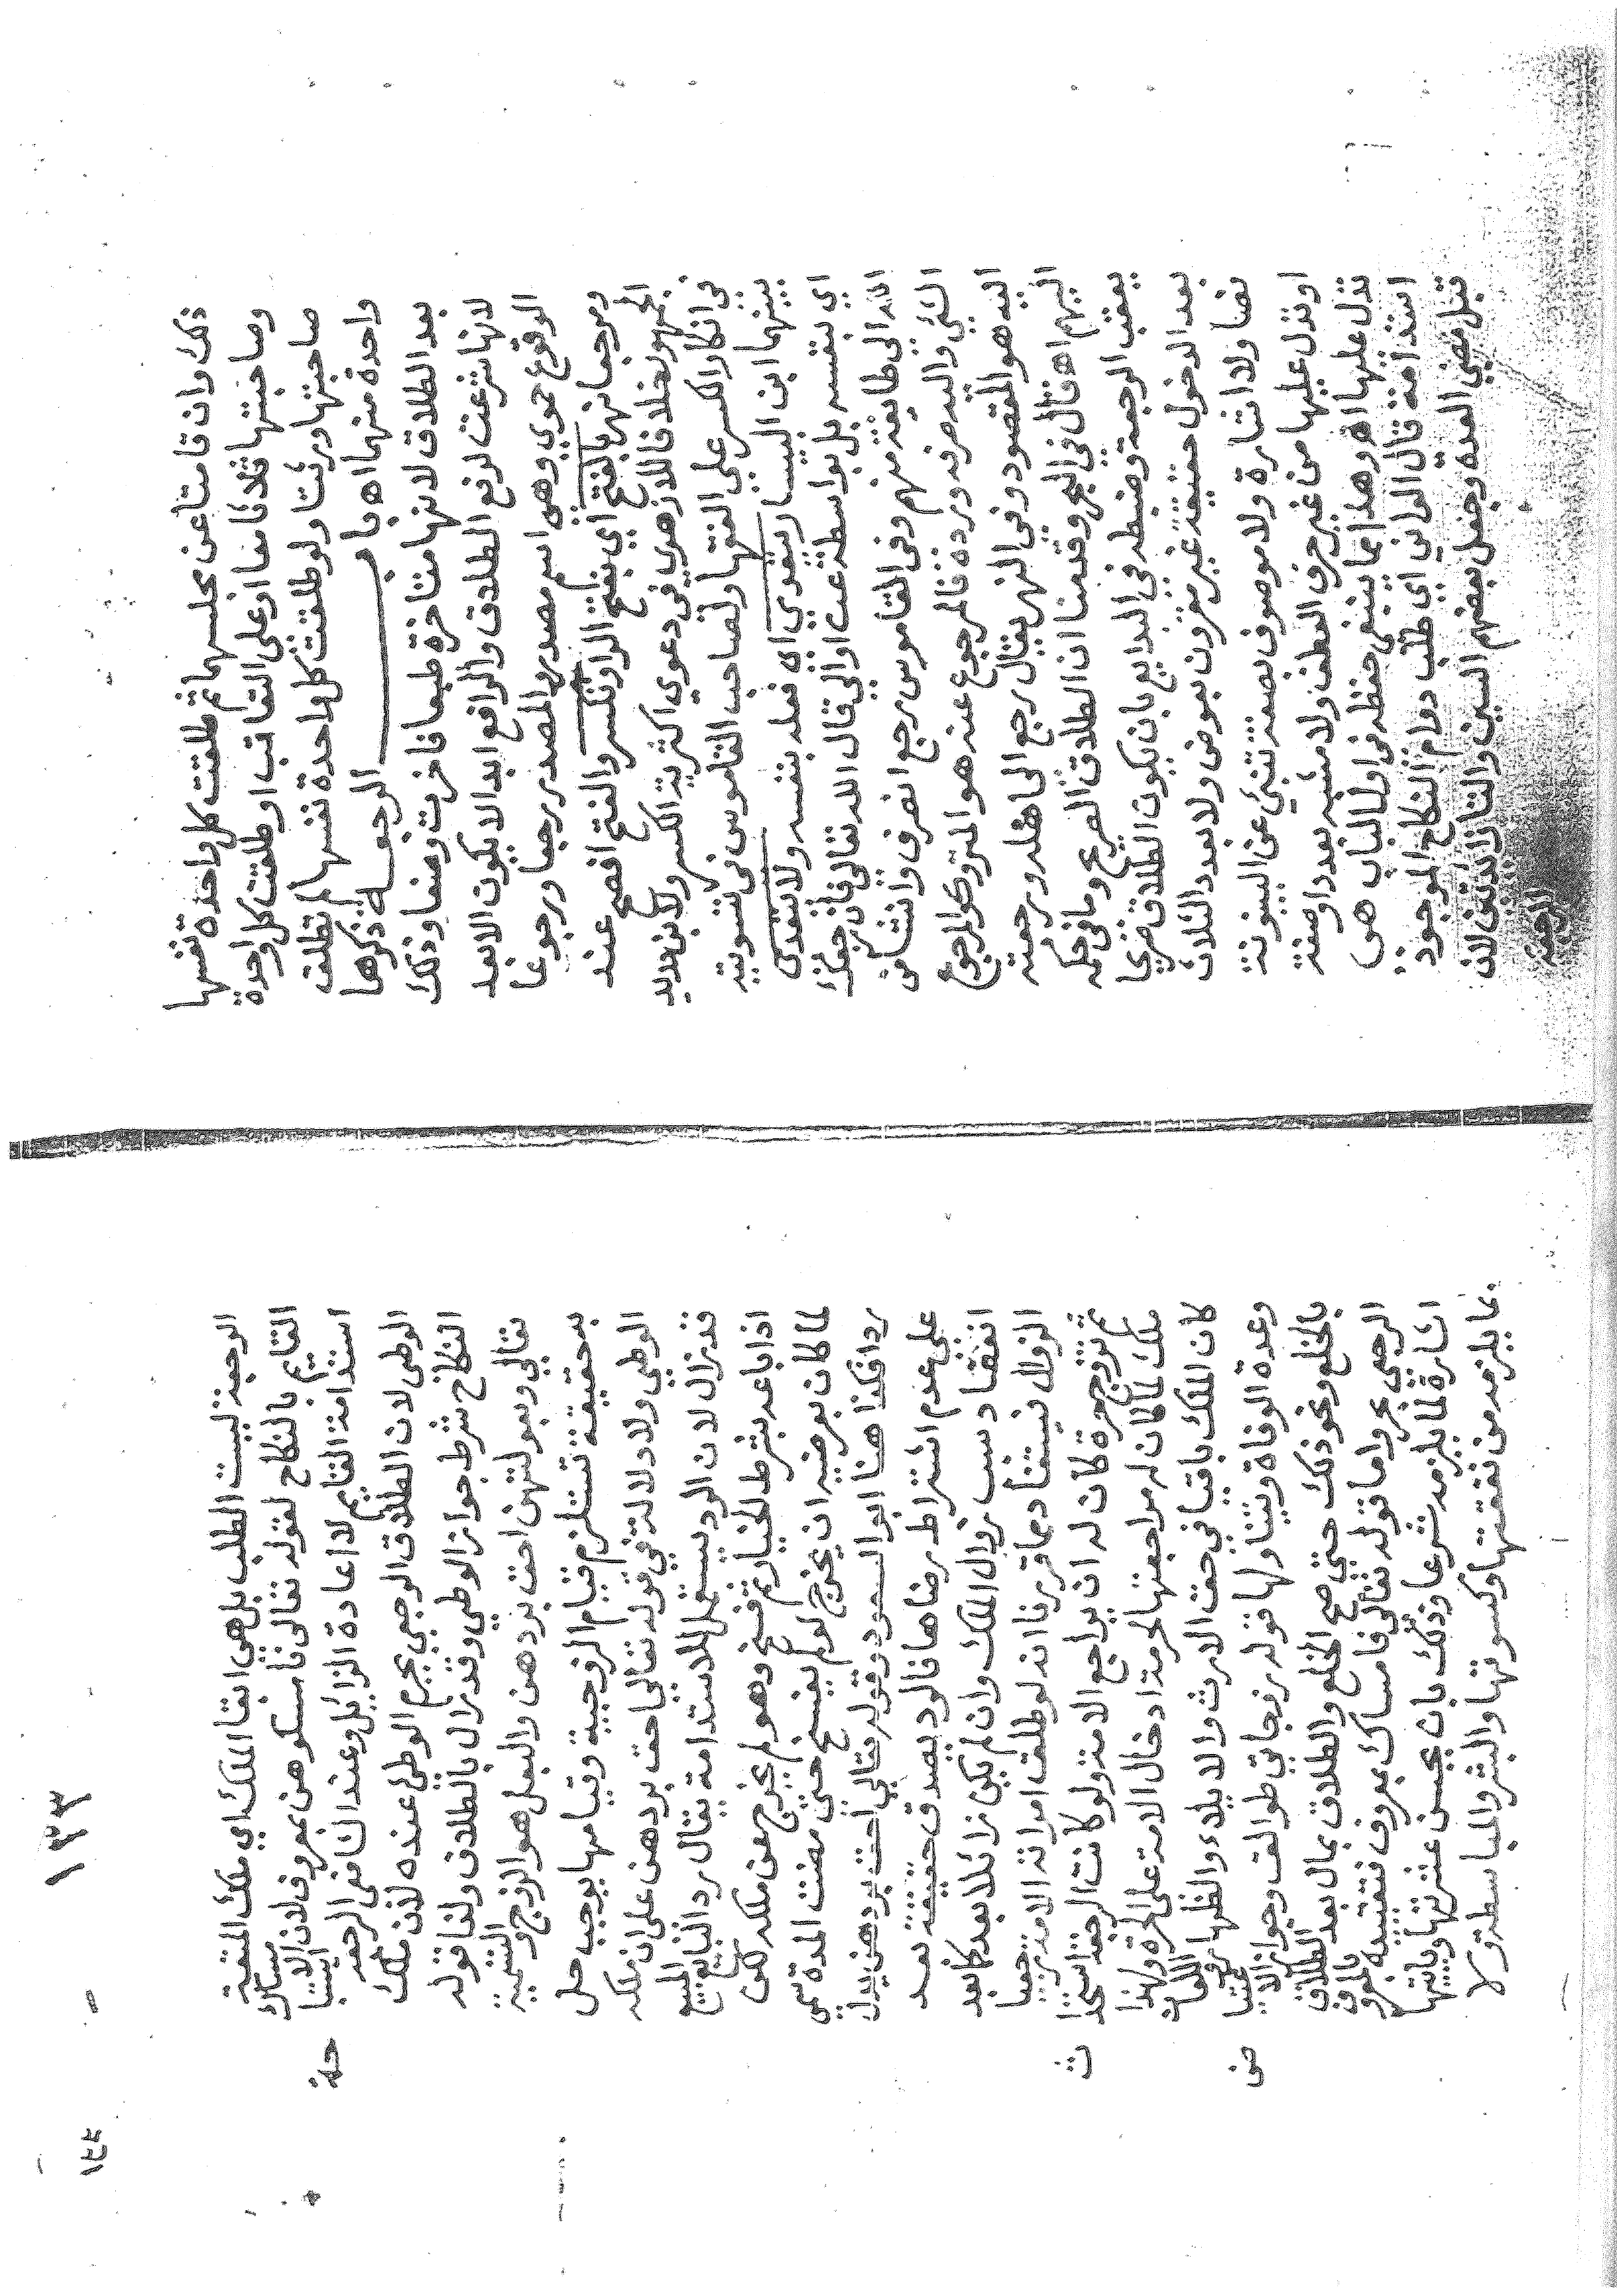 ذلك وان قامتا عن مجلسهما ثم طلقت كل واحدة نفسها
وصاحبتها ثلاثا معا او على التعاقب او طلقت كل واحدة
صاحبتها ورثتا ولو طلقت كل واحدة نفسها لم تطلق
واحدة منهما اه باب الرجعة ذكرها
بعد الطلاق لانها متأخرة طبعا فاخرت وضعا وذلك
لانها شرعت لرفع الطلاق والواقع ابدا لا يكون الا بعد
الوقوع حموي وهي اسم مصدر والمصدر رجعا ورجوعا
ومرجعا نهر بالفتح اي بفتح الراء وتكسر والفتح افصح عند
الجمهور خلافا للازهري في دعوي اكثرية الكسر ولابن دريد
في انكار الكسر على الفقهاء ولصاحب القاموس في تسوية
بينهما ابن البيسا ريتقوي اي فعله بنفسه ولا يتعدى
اي بنفسه بل بواسطة عن او الي قال الله تعالى فان رجعك
الله الى طايفة منهم وفي القاموس رجع انصرف وانشا من
الشئ واليه صرفه ورده فالمرجوع عنه هو المتروك والمرجوع
اليه هو المقصود وفي النهر يقال رجع الى اهله ورجعته
اليهم اه قال في البحر وقدمنا ان الطلاق الصريح وما في حكمه
يعقب الرجعة وضبطه في البدايع بان يكون الطلاق صريحا
بعد الدخول حقيقة غير مقرون بعوض ولا بعدد الثلاث
نصا ولا اشارة ولا موصوف بصفة تنبئ عن البينونة
او تدل عليها من غير حرف العطف ولا مشبه بعدد او صفة
تدل عليها اه وهذا مما ينبغي حفظه في اول الباب هي
استدامة قال الواني اي طلب دوام النكاح الموجود
قبل مضي العدة وجعل بعضهم السين والتا زايدتين لان
الرجعة
١٣٣
١٤٤
الرجعة ليست الطلب بل هي ابقا الملك اي ملك المتعة
القايم بالنكاح لقوله تعالى فامسكوهن بمعروف لان الامساك
استدامة القايم لا اعادة الزايل وعند الشافعي الرجعة استباحة
الوطئ لان الطلاق الرجعي يحرم الوطئ عنده لان ملك
النكاح شرط جواز الوطي وقد زال بالطلاق ولنا قوله
تعالى وبعولتهن احق بردهن والبعل هو الزوج والتسمية
به حقيقة تستلزم قيام الزوجية وقيامها يوجب حل
الوطي ولا دلالة في قوله تعالى احق بردهن على ان ملكه
قد زال لان الرد يستعمل للاستدامة يقال رد البايع المبيع
اذا باعه بشرط الخيار ثم فسخ وهو لم يخرج عن ملكه لكن
لما كان بعرضية ان يخرج لو لم يفسخ حتى مضت المدة سمي
ردا فكذا هنا ابو السعود وقوله تعالى احق بردهن يدل
على عدم اشتراط رضاها فالرد يصدق حقيقة بعد
انعقاد سبب زوال الملك وان لم يكن زائلا بعد كما بعد
الزوال يستفاد مما قررنا انه لو طلق امراته الامة رجعيا
ثم تزوج حرة كان له ان يراجع الامة ولو كانت الرجعة استحداث
ملك لما كان له مراجعتها لحرمة ادخال الامة على الحرة ولهذا
كان الملك باقيا في حق الارث والايلاء والظهار واللعان
وعدة الوفاة وتناولها قوله زوجاتي طوالق وجواز الاعتياض
بالخلع ونحو ذلك حتى صح الخلع والطلاق بمال بعد الطلاق
الرجعي بحر واما قوله تعالى فامساك بمعروف فتقييده بالمعروف
اشارة لما يلزمه شرعا وذلك بان يحسن عشرتها وياتيها
بما يلزمه من نفقتها وكسوتها والبشر والمباسطة ولا